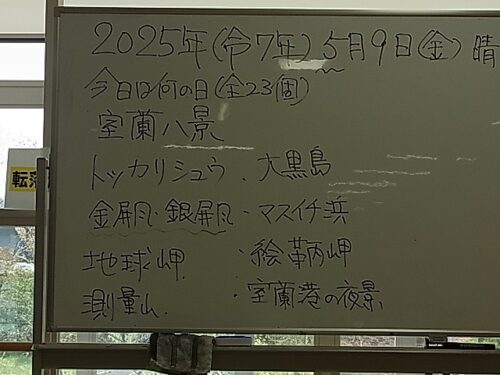 2025年(令7年)5月9日(金) 晴
今日は何の日(全23個)
室蘭八景
トッカリショウ・大黒島
金屏風・銀屏風・マスイチ浜
地球岬・絵鞆岬
測量山・室蘭港の夜景
転落